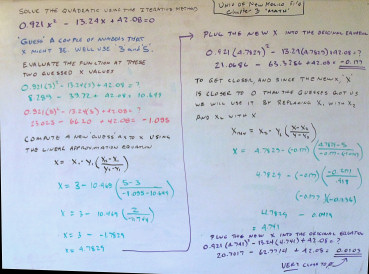 SOLVE THE QUADRATIC USING THE ITERATIVE METHOD
0.921x² - 13.24x + 42.08 = 0
"GUESS" A COUPLE OF NUMBERS THAT
X MIGHT BE. WE'LL USE 3 AND 5.
EVALUATE THE FUNCTION AT THESE
TWO GUESSED X VALUES
0.921(3)² - 13.24(3) + 42.08 = ?
8.289 - 39.72 + 42.08 = 10.649
0.921(5)² - 13.24(5) + 42.08 = ?
23.025 - 66.20 + 42.08 = -1.095
COMPUTE A NEW GUESS AS TO X USING
THE LINEAR APPROXIMATION EQUATION
X = X₁ - Y₁ (X₂ - X₁ / Y₂ - Y₁)
X = 3 - 10.649 (5 - 3 / -1.095 - 10.649)
X = 3 - 10.649 (2 / -11.744)
X = 3 - -1.7829
X = 4.7829
PLUG THE NEW X INTO THE ORIGINAL EQUATION
0.921(4.7829)² - 13.24(4.7829) + 42.08 = ?
21.0686 - 63.3256 + 42.08 = -0.177
TO GET CLOSER, AND SINCE THE NEW X
IS CLOSER TO 0 THAN THE GUESSES GOT US
WE WILL USE IT BY REPLACING X₁ WITH X₂
AND X₂ WITH X
X = 4.7829 - (-0.177)
4.7829 - (-0.177)
4.7829 -
= 4.741
PLUG THE NEW X INTO THE ORIGINAL EQUATION
0.921(4.741)² - 13.24(4.741) + 42.08 = ?
20.7017 - 62.7714 + 42.08 = 0.0103
VERY CLOSE TO